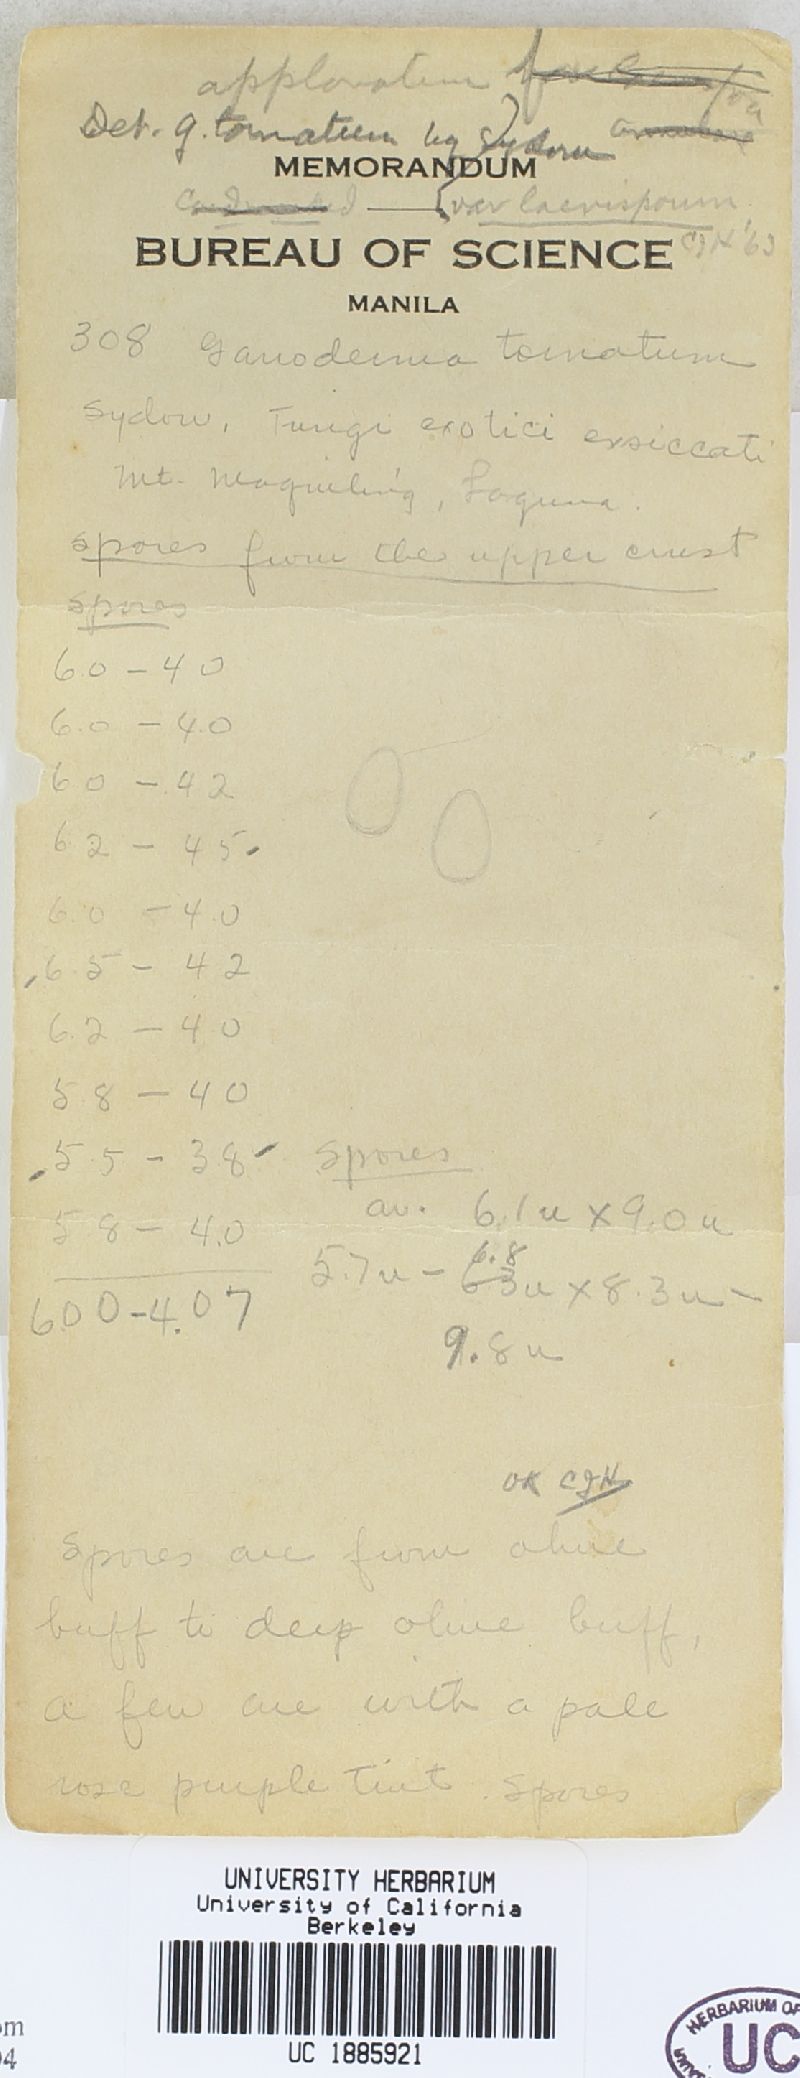 applanatum
Det. G. tornatum by Sydow
MEMORANDUM
var laevisporum
BUREAU OF SCIENCE CJH '63
MANILA
308 Ganoderma tornatum
Sydow, Fungi exotici exsiccati
Mt. Maquiling, Laguna.
spores from the upper crust
spores
6.0 - 4 0
6.0 - 4.0
6 0 - 4 2
6 2 - 4 5
6.0 - 4.0
6 5 - 4 2
6.2 - 4 0
5 8 - 4 0
5.5 - 3 8
5 8 - 4.0
6.00 - 4.07
Spores
av. 6.1 u x 9.0 u
5.7 u - 6.8 u x 8.3 u -
9.8 u
OK CJH
Spores are from olive
buff to deep olive buff,
a few are with a pale
rose purple tint. Spores
UNIVERSITY HERBARIUM
University of California
Berkeley
UC 1885921
HERBARIUM OF
UC
om
04